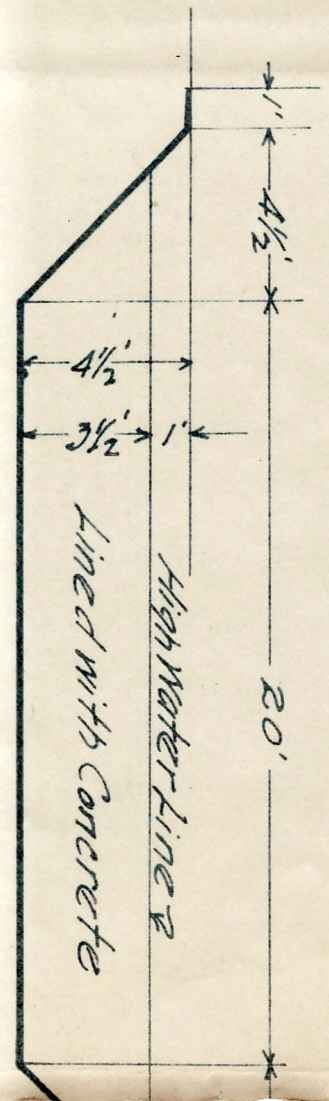 1' 4½' 20'
4½'
3½' 1'
High Water Line
Lined with Concrete